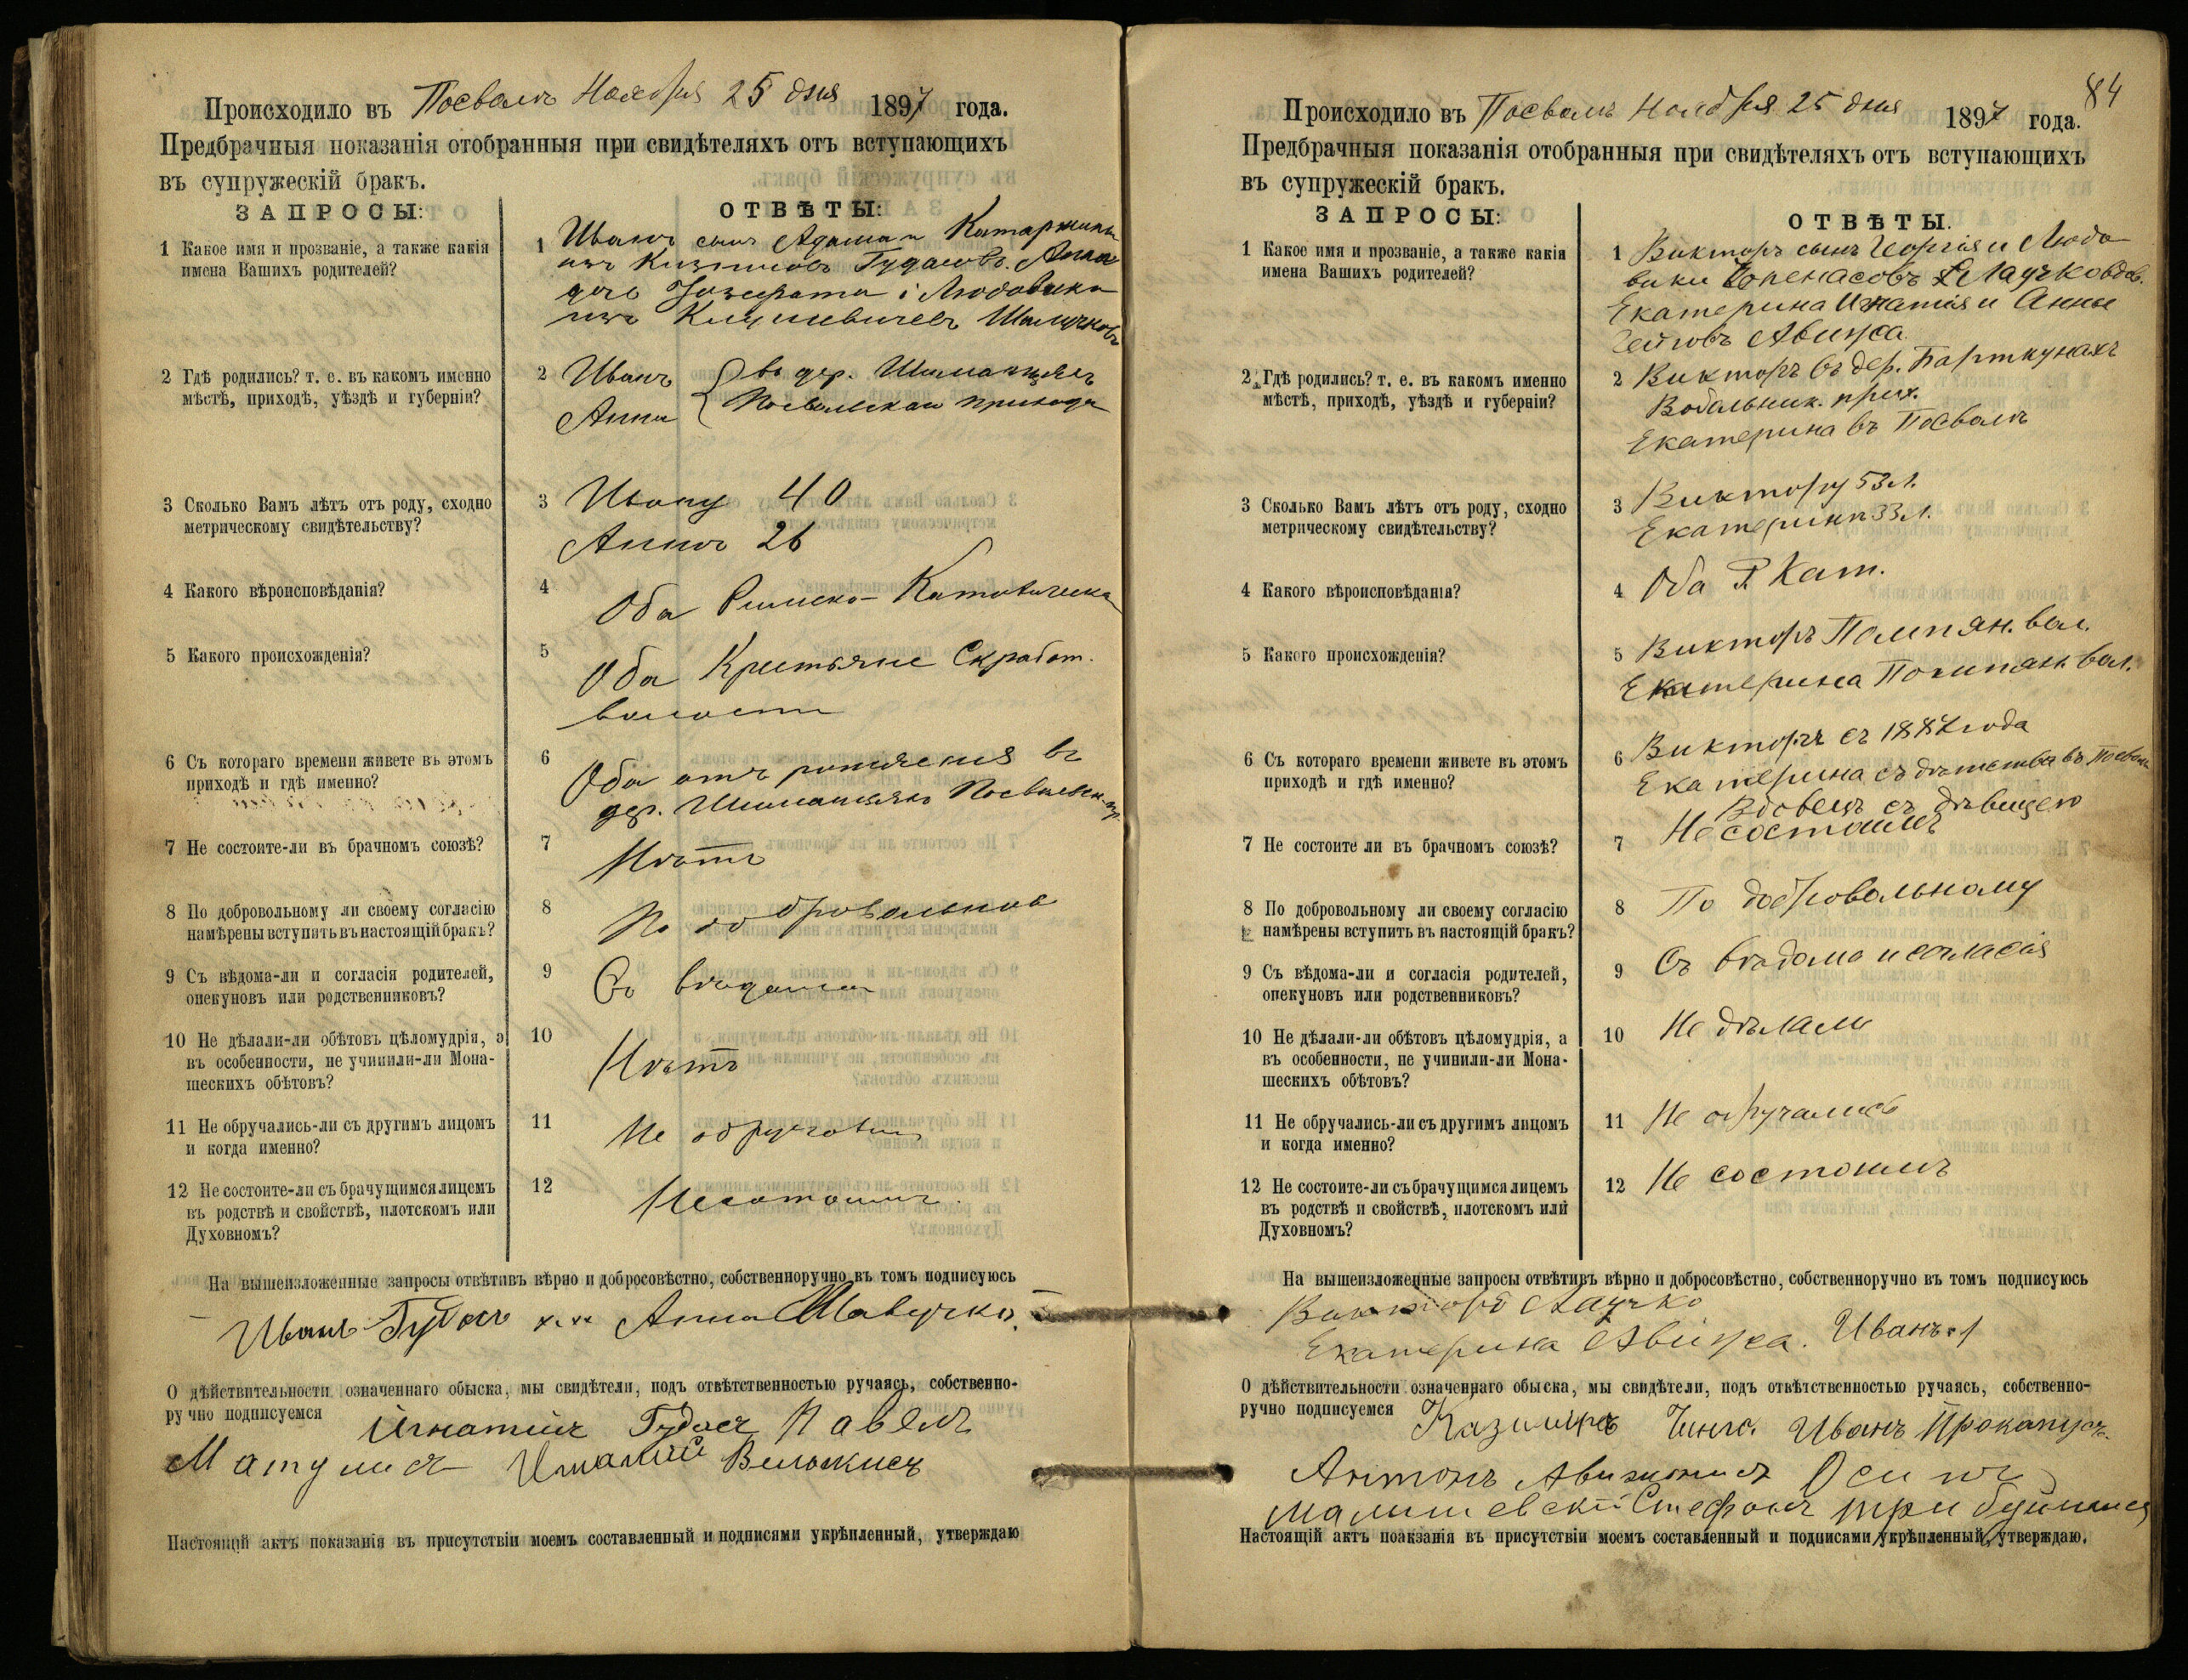 Происходило въ Посволъ Ноября 25 дня 1897 года.
Предбрачныя показанія отобранныя при свидѣтеляхъ отъ вступающихъ
въ супружескій бракъ.
ЗАПРОСЫ:
ОТВѢТЫ:
1 Какое имя и прозваніе, а также какія
имена Вашихъ родителей?
1 Иванъ сынъ Адама и Катаржины
Гудасовъ. Анна
дочь Іозефата і Людовики
2 Гдѣ родились? т. е. въ какомъ именно
мѣстѣ, приходѣ, уѣздѣ и губерніи?
2 Иванъ въ дер.
Анна Посвольскаго прихода
3 Сколько Вамъ лѣтъ отъ роду, сходно
метрическому свидѣтельству?
3 Ивану 40
Аннѣ 26
4 Какого вѣроисповѣданія?
4 Оба Римско-Католическа
5 Какого происхожденія?
5 Оба Крестьяне Скработ.
волости
6 Съ котораго времени живете въ этомъ
приходѣ и гдѣ именно?
6 Оба отъ рожденія въ
дер.
7 Не состоите-ли въ брачномъ союзѣ?
7 Нѣтъ
8 По добровольному ли своему согласію
намѣрены вступить въ настоящій бракъ?
8 По добровольной
9 Съ вѣдома-ли и согласія родителей,
опекуновъ или родственниковъ?
9 Съ вѣдома
10 Не дѣлали-ли обѣтовъ цѣломудрія, а
въ особенности, не учинили-ли Мона-
шескихъ обѣтовъ?
10 Нѣтъ
11 Не обручались-ли съ другимъ лицомъ
и когда именно?
11 Не обручались
12 Не состоите-ли съ брачущимся лицемъ
въ родствѣ и свойствѣ, плотскомъ или
Духовномъ?
12 Несостоимъ
На вышеизложенные запросы отвѣтивъ вѣрно и добросовѣстно, собственноручно въ томъ подписуюсь
Иванъ Гудасъ Анна
О дѣйствительности означеннаго обыска, мы свидѣтели, подъ отвѣтственностью ручаясь, собственно-
ручно подписуемся Игнатій Гудасъ Павелъ
Матулисъ
Настоящій актъ показанія въ присутствіи моемъ составленный и подписями укрѣпленный, утверждаю
84
Происходило въ Посволъ Ноября 25 дня 1897 года.
Предбрачныя показанія отобранныя при свидѣтеляхъ отъ вступающихъ
въ супружескій бракъ.
ЗАПРОСЫ:
ОТВѢТЫ.
1 Какое имя и прозваніе, а также какія
имена Вашихъ родителей?
1 Викторъ сынъ Георгія и Людо
вики
Екатерина Игнатія и Анны
Авижа
2 Гдѣ родились? т. е. въ какомъ именно
мѣстѣ, приходѣ, уѣздѣ и губерніи?
2 Викторъ въ дер. Барткунахъ
Вобольник. прих.
Екатерина въ Посволѣ
3 Сколько Вамъ лѣтъ отъ роду, сходно
метрическому свидѣтельству?
3 Виктору 53 л.
Екатеринѣ 33 л.
4 Какого вѣроисповѣданія?
4 Оба Р. Кат.
5 Какого происхожденія?
5 Викторъ Помпян. вол.
Екатерина вол.
6 Съ котораго времени живете въ этомъ
приходѣ и гдѣ именно?
6 Викторъ съ 1887 года
Екатерина съ дѣтства въ Посволѣ
Вдовецъ съ дѣвицею
7 Не состоите ли въ брачномъ союзѣ?
7 Не состоимъ
8 По добровольному ли своему согласію
намѣрены вступить въ настоящій бракъ?
8 По добровольному
9 Съ вѣдома-ли и согласія родителей,
опекуновъ или родственниковъ?
9 Съ вѣдома и согласія
10 Не дѣлали-ли обѣтовъ цѣломудрія, а
въ особенности, не учинили-ли Мона-
шескихъ обѣтовъ?
10 Не дѣлали
11 Не обручались-ли съ другимъ лицомъ
и когда именно?
11 Не обручались
12 Не состоите-ли съ брачущимся лицемъ
въ родствѣ и свойствѣ, плотскомъ или
Духовномъ?
12 Не состоимъ
На вышеизложенные запросы отвѣтивъ вѣрно и добросовѣстно, собственноручно въ томъ подписуюсь
Викторъ Лаучко
Екатерина Авижа. Иванъ
О дѣйствительности означеннаго обыска, мы свидѣтели, подъ отвѣтственностью ручаясь, собственно-
ручно подписуемся Казиміръ Иванъ
Антонъ Осипъ
Малишевскій Стефанъ
Настоящій актъ поакзанія въ присутствіи моемъ составленный и подписями укрѣпленный, утверждаю.